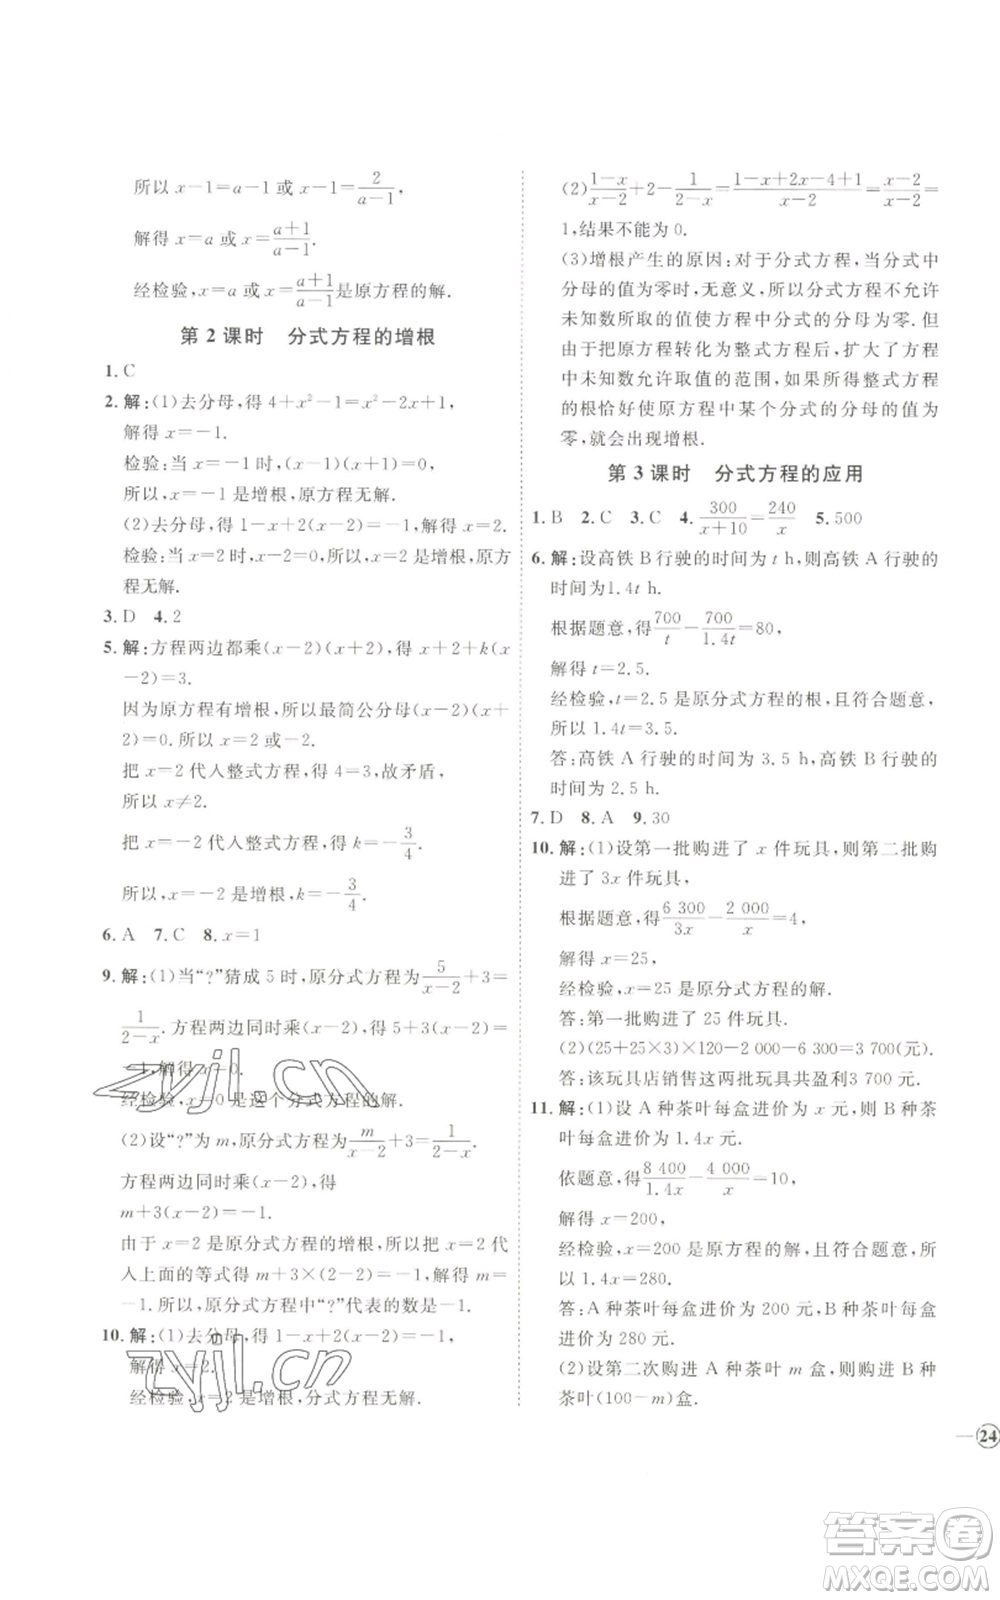 所以 x−1=a−1 或 x−1=2/(a−1),
解得 x=a 或 x=(a+1)/(a−1).
经检验,x=a 或 x=(a+1)/(a−1)是原方程的解.
第 2 课时 分式方程的增根
1. C
2. 解:(1)去分母,得 4+x²−1=x²−2x+1,
解得 x=−1.
检验:当 x=−1 时,(x+1)(x−1)=0,
所以,x=−1 是增根,原方程无解.
(2)去分母,得 1−x+2(x−2)=−1.
检验:当 x=2 时,x−2=0,x=2 是增根,原方
程无解.
3. D 4. 2
5. 解:方程两边都乘(x−2)(x+2),得 x+2+k(x
−2)=3.
因为原方程有增根,所以最简公分母(x−2)(x+
2)=0.所以 x=2 或−2.
把 x=2 代人整式方程,得 4=3,故矛盾,
所以 x≠2.
把 x=−2 代人整式方程,得 k=−3/4.
所以,x=−2 是增根,k=−3/4.
6. A 7. C 8. x=1
9. 解:(1)当“?”猜成 5 时,原分式方程为5/(x−2)+3=
1/(2−x).方程两边同时乘(x−2),得 5+3(x−2)=
−1,解得 x=0.
经检验,x=0 是这个分式方程的解.
(2)设“?”为 m,原分式方程为m/(x−2)+3=1/(2−x).
方程两边同时乘(x−2),得
m+3(x−2)=−1.
由于 x=2 是原分式方程的增根,所以把 x=2 代
人上面的等式得 m+3×(2−2)=−1,解得 m=
−1.所以,原分式方程中“?”代表的数是−1.
10. 解:(1)去分母,得 1−x+2(x−2)=−1,
解得 x=2.
经检验,x=2 是增根,分式方程无解.
(2)(1−x)/(x−2)+2−1/(2−x)=(1−x+2x−4+1)/(x−2)=(x−2)/(x−2)=
1,结果不能为 0.
(3)增根产生的原因:对于分式方程,当分式中
分母的值为零时,无意义,所以分式方程不允许
未知数所取的值使方程中分式的分母为零.但
由于把原方程转化为整式方程后,扩大了方程
中未知数允许取值的范围,如果所得整式方程
的根恰好使原方程中某个分式的分母的值为
零,就会出现增根.
第 3 课时 分式方程的应用
1. B 2. C 3. C 4. 300/(x+10)=240/x 5. 500
6. 解:设高铁 B 行驶的时间为 t h,则高铁 A 行驶的
时间为1.4t h.
根据题意,得700/t−700/1.4t=80,
解得 t=2.5.
经检验,t=2.5 是原分式方程的根,且符合题意,
所以 1.4t=3.5.
答:高铁 A 行驶的时间为 3.5 h,高铁 B 行驶的
时间为 2.5 h.
7. D 8. A 9. 30
10. 解:(1)设第一批购进了 x 件玩具,则第二批购
进了 3x 件玩具,
根据题意,得6 300/3x−2 000/x=4,
解得 x=25,
经检验,x=25 是原分式方程的解.
答:第一批购进了 25 件玩具.
(2)(25+25×3)×120−2 000−6 300=3 700(元).
答:该玩具店销售这两批玩具共盈利3 700 元.
11. 解:(1)设 A 种茶叶每盒进价为 x 元,则 B 种茶
叶每盒进价为 1.4x 元.
依题意,得8 400/1.4x−4 000/x=10,
解得 x=200,
经检验,x=200 是原方程的解,且符合题意,所
以 1.4x=280.
答:A 种茶叶每盒进价为 200 元,B 种茶叶每盒
进价为 280 元.
(2)设第二次购进 A 种茶叶 m 盒,则购进 B 种
茶叶(100−m)盒.
— 24
zyjl.cn
zyjl.cn
答案卷
MXQE.COM